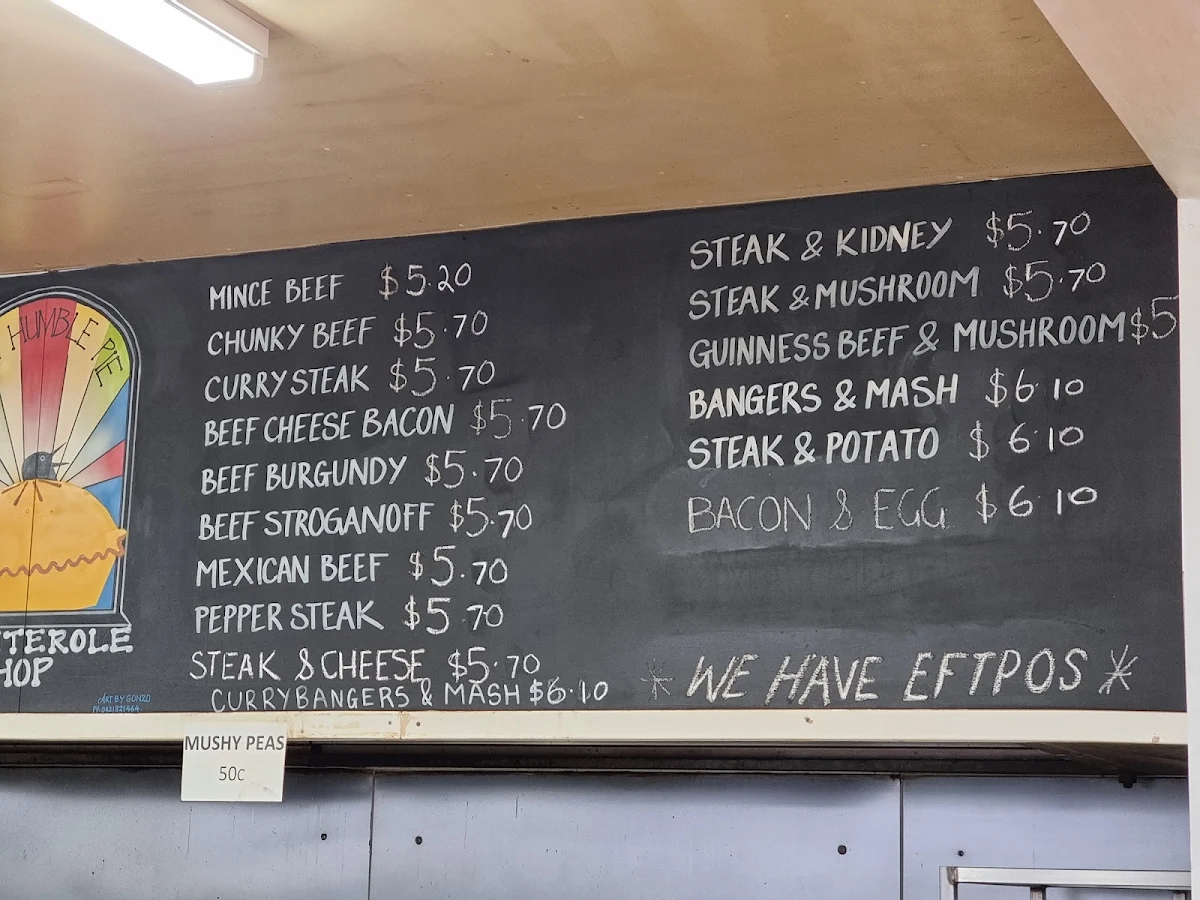 HUMBLE PIE
TTEROLE
HOP
ART BY GONZO
MINCE BEEF $5.20
CHUNKY BEEF $5.70
CURRY STEAK $5.70
BEEF CHEESE BACON $5.70
BEEF BURGUNDY $5.70
BEEF STROGANOFF $5.70
MEXICAN BEEF $5.70
PEPPER STEAK $5.70
STEAK & CHEESE $5.70
CURRY BANGERS & MASH $6.10
STEAK & KIDNEY $5.70
STEAK & MUSHROOM $5.70
GUINNESS BEEF & MUSHROOM $5
BANGERS & MASH $6.10
STEAK & POTATO $6.10
BACON & EGG $6.10
* WE HAVE EFTPOS *
MUSHY PEAS
50c